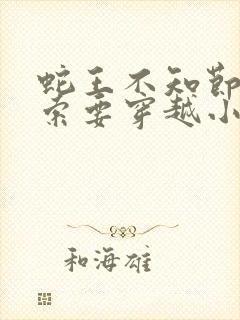 蛇王不知节
索要穿越小
和海雄